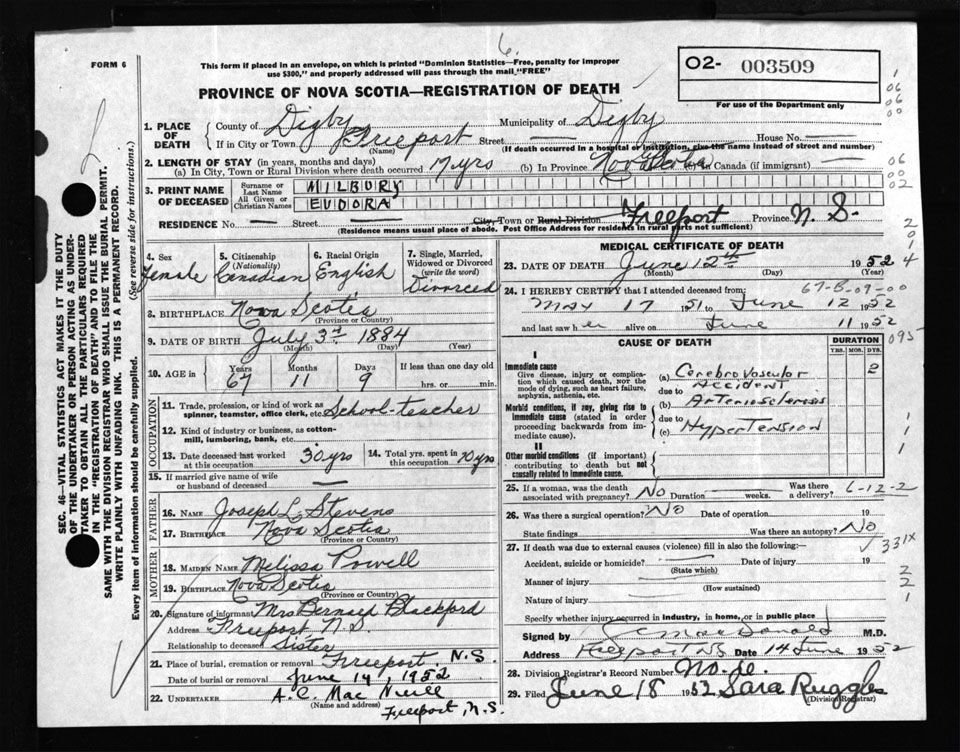 6.
FORM 6
This form if placed in an envelope, on which is printed "Dominion Statistics—Free, penalty for improper
use $300," and properly addressed will pass through the mail "FREE"
O2- 003509
For use of the Department only
PROVINCE OF NOVA SCOTIA—REGISTRATION OF DEATH
1. PLACE OF DEATH
County of Digby Municipality of Digby
If in City or Town Freeport Street — House No. —
(Name) (If death occurred in a hospital or institution, give the name instead of street and number)
2. LENGTH OF STAY (in years, months and days)
(a) In City, Town or Rural Division where death occurred 17 yrs (b) In Province Nova Scotia (c) In Canada (if immigrant) —
3. PRINT NAME OF DECEASED
Surname or Last Name HILBURY
All Given or Christian Names EUDORA
RESIDENCE No. — Street — City, Town or Rural Division Freeport Province N. S.
(Residence means usual place of abode. Post Office Address for residents in rural parts not sufficient)
4. Sex Female
5. Citizenship (Nationality) Canadian
6. Racial Origin English
7. Single, Married, Widowed or Divorced (write the word) Divorced
8. BIRTHPLACE Nova Scotia
(Province or Country)
9. DATE OF BIRTH July 3rd 1884
(Month) (Day) (Year)
10. AGE in Years 67 Months 11 Days 9 If less than one day old
hrs. or min.
OCCUPATION
11. Trade, profession, or kind of work as
spinner, teamster, office clerk, etc. School-teacher
12. Kind of industry or business, as cotton-
mill, lumbering, bank, etc.
13. Date deceased last worked at this occupation 30 yrs
14. Total yrs. spent in this occupation 10 yrs
15. If married give name of wife
or husband of deceased —
FATHER
16. NAME Joseph L. Stevens
17. BIRTHPLACE Nova Scotia
(Province or Country)
MOTHER
18. MAIDEN NAME Melissa Powell
19. BIRTHPLACE Nova Scotia
(Province or Country)
20. Signature of informant Mrs Blackford
Address Freeport N.S.
Relationship to deceased Sister
21. Place of burial, cremation or removal Freeport, N.S.
Date of burial or removal June 14, 1952
22. UNDERTAKER A. C. Mac Neill
(Name and address) Freeport, N.S.
MEDICAL CERTIFICATE OF DEATH
23. DATE OF DEATH June 12th 1952
(Month) (Day) (Year)
67-B-09-00
24. I HEREBY CERTIFY that I attended deceased from:
May 17 1951 to June 12 1952
and last saw her alive on June 11 1952
095
CAUSE OF DEATH
DURATION
YRS. MOS. DYS.
I
Immediate cause
Give disease, injury or complication which caused death, not the mode of dying, such as heart failure, asphyxia, asthenia, etc.
(a) Cerebrovascular Accident 2
due to
Morbid conditions, if any, giving rise to immediate cause (stated in order proceeding backwards from immediate cause).
(b) Arteriosclerosis
due to
(c) Hypertension
II
Other morbid conditions (if important) contributing to death but not causally related to immediate cause.
25. If a woman, was the death associated with pregnancy? No Duration — weeks. Was there a delivery? 6-12-2
26. Was there a surgical operation? No Date of operation 19
State findings Was there an autopsy? No
331X
27. If death was due to external causes (violence) fill in also the following:—
Accident, suicide or homicide? (State which) Date of injury 19
Manner of injury (How sustained)
Nature of injury
Specify whether injury occurred in industry, in home, or in public place
Signed by MacDonald M.D.
Address Freeport NS Date 14 June 1952
28. Division Registrar's Record Number
29. Filed June 18 1952 Sara Ruggles
(Division Registrar)
SEC. 46—VITAL STATISTICS ACT MAKES IT THE DUTY
OF THE UNDERTAKER OR PERSON ACTING AS UNDER-
TAKER TO OBTAIN ALL THE PARTICULARS REQUIRED
IN THE "REGISTRATION OF DEATH" AND TO FILE THE
SAME WITH THE DIVISION REGISTRAR WHO SHALL ISSUE THE BURIAL PERMIT.
WRITE PLAINLY WITH UNFADING INK. THIS IS A PERMANENT RECORD.
Every item of information should be carefully supplied. (See reverse side for instructions.)
1
06
06
00
06
00
02
2
0
1
4
1
1
1
2
2
1